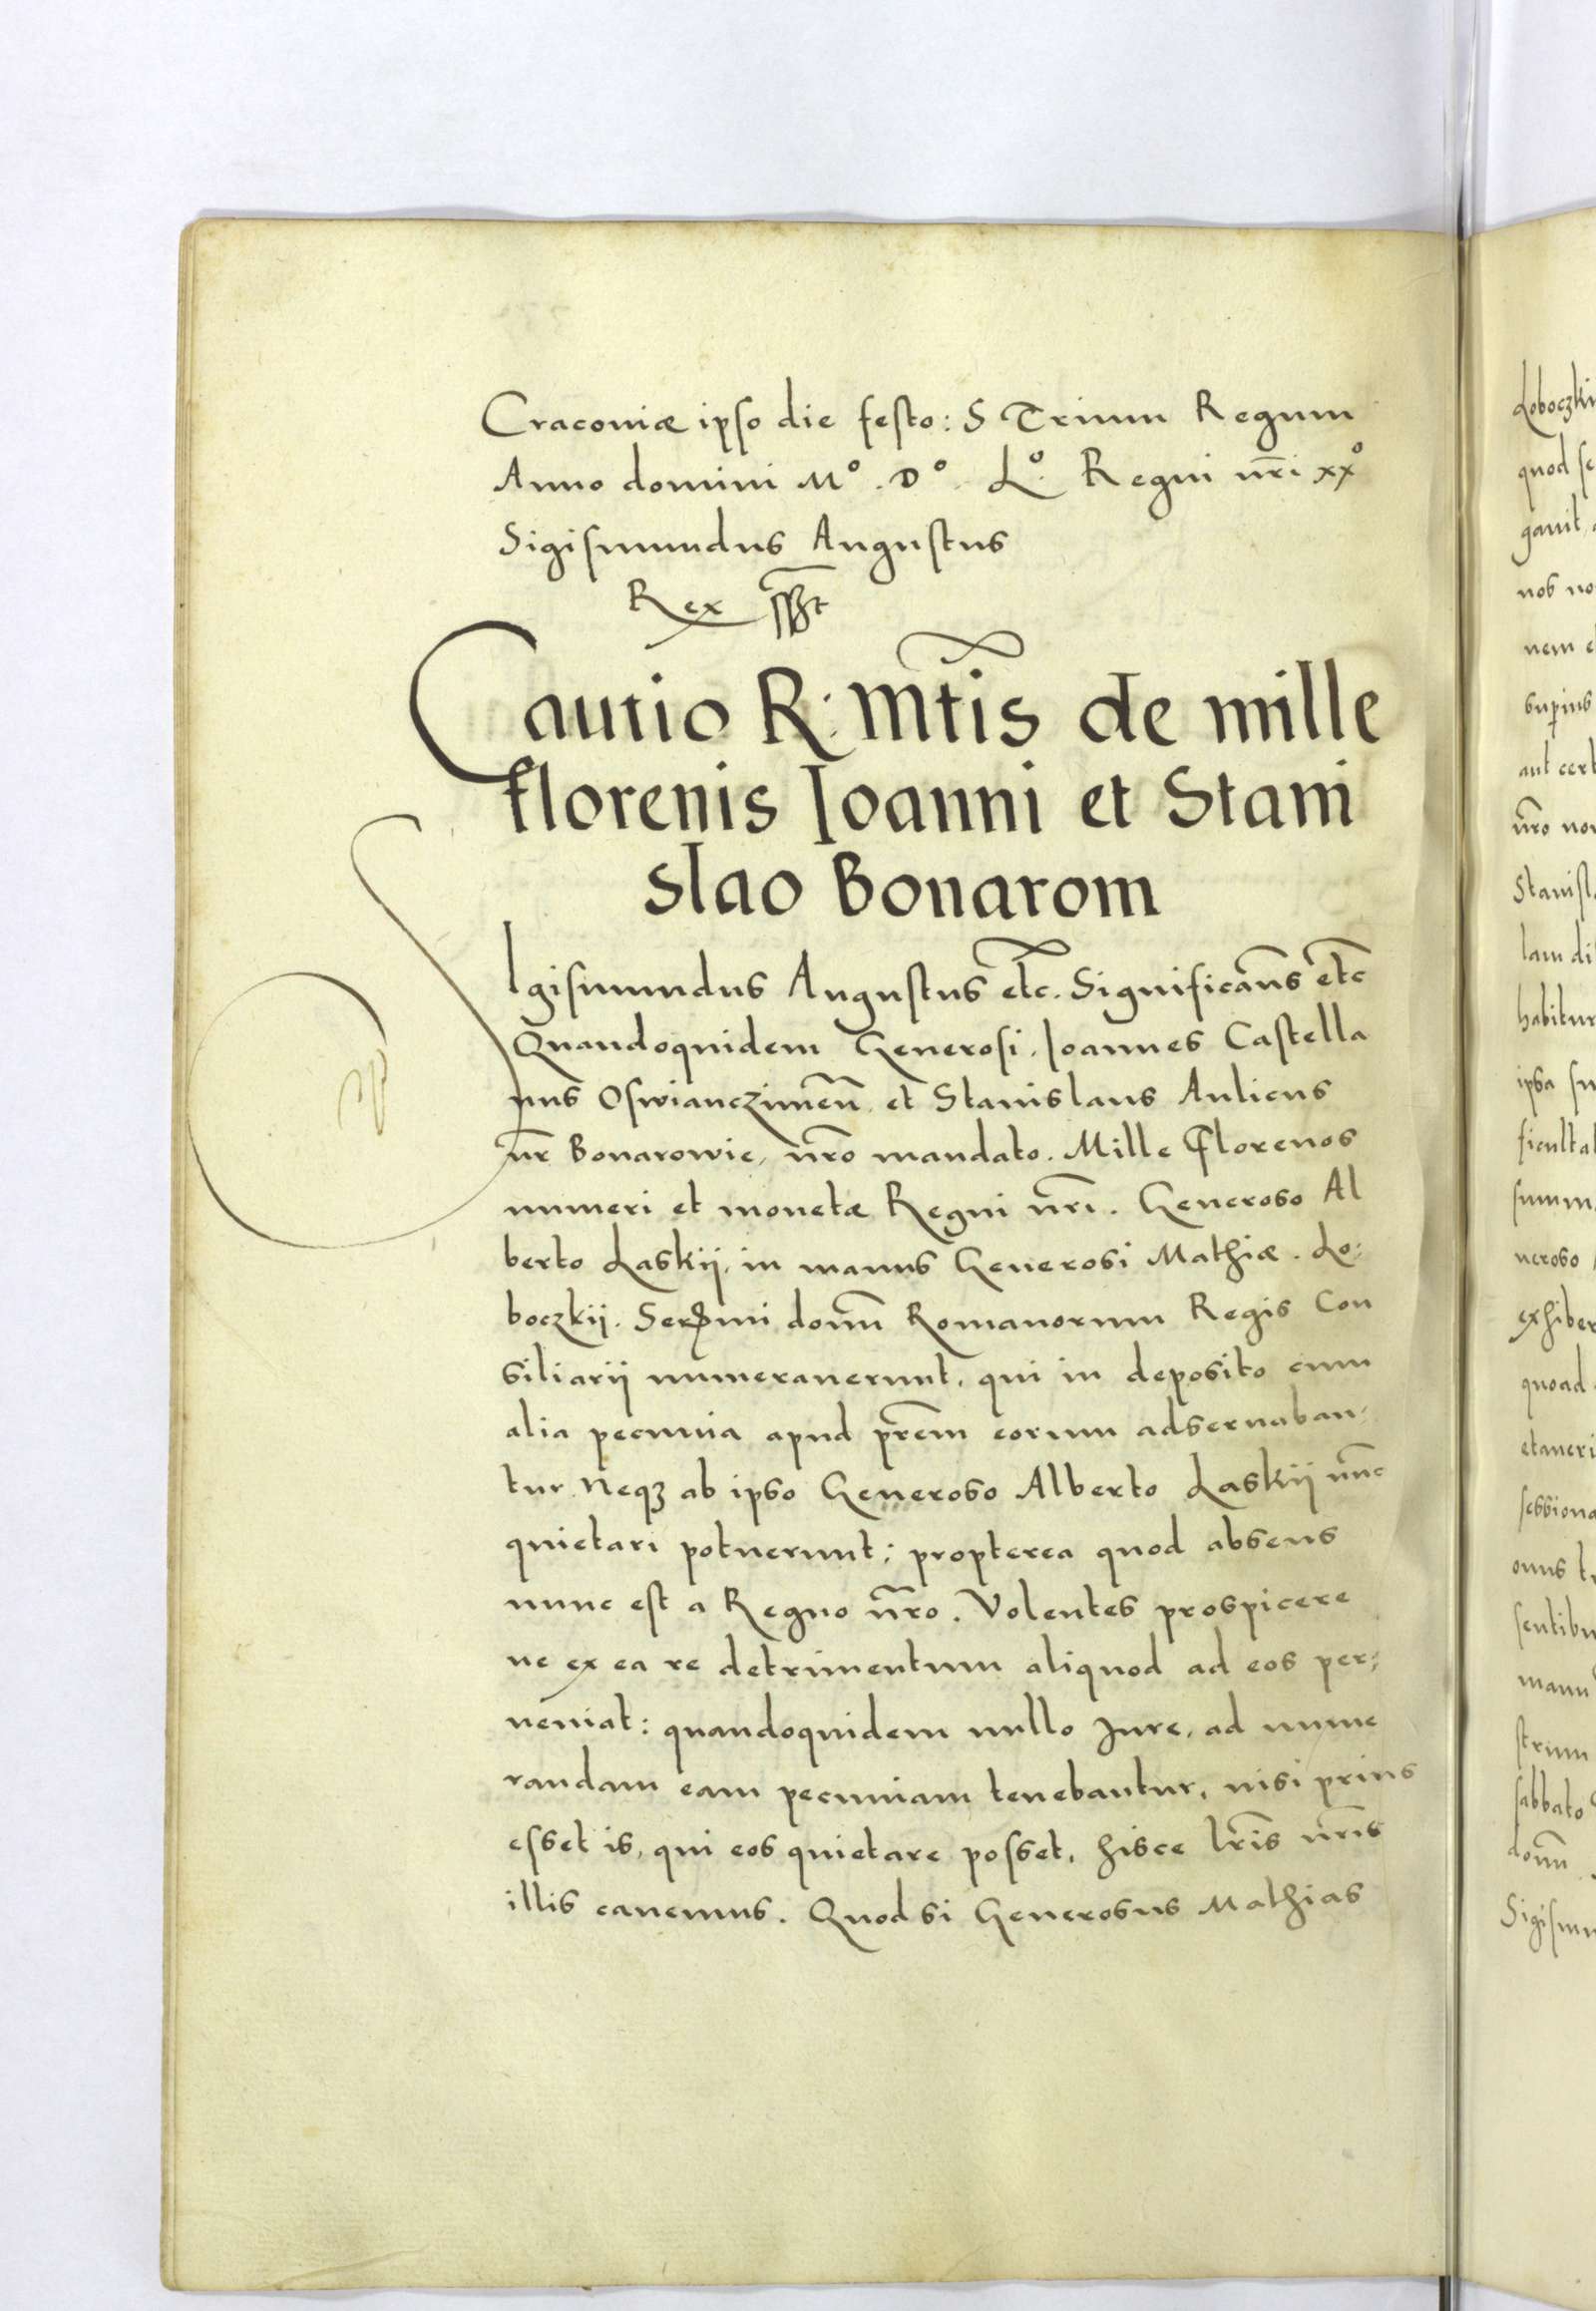 Cracoviæ ipso die festo: S Trium Regum
Anno domini Mº. Dº. Lº. Regni nr̄i xxº
Sigismundus Augustus
Rex
Cautio R: Mtis de mille
florenis Ioanni et Stani
slao Bonarom
Sigismundus Augustus etc. Significam̄s etc
Quandoquidem Generosi, Ioannes Castella
nus Oswianczimen̄ et Stanislaus Aulicus
nr̄ Bonarowie, nr̄o mandato. Mille Florenos
numeri et monetæ Regni nr̄i. Generoso Al
berto Laskij, in manus Generosi Mathiæ. Lo:
boczkij. Sermi dom̄ Romanorum Regis Con
siliarij numeraverunt, qui in deposito cum
alia pecunia apud pr̄em eorum adservaban:
tur. Neqʒ ab ipso Generoso Alberto Laskij nūc
quietari potuerunt: propterea quod absens
nunc est a Regno nr̄o. Volentes prospicere
ne ex ea re detrimentum aliquod ad eos per:
veniat: quandoquidem nullo Jure, ad nume
randam eam pecuniam tenebantur, nisi prius
esset is, qui eos quietare posset, hisce lr̄is nr̄is
illis cavemus. Quod si Generosus Mathias
Loboczki
quod se
gavit
nos no
nem
supius
aut cert
nr̄o non
Stanisl
lam di
habitur
ipsa su
ficulta
summ
neroso
exhiber
quoad
etaneri
sessiona
onus
sentibu
manu
strum
sabbato
dom̄
Sigismu